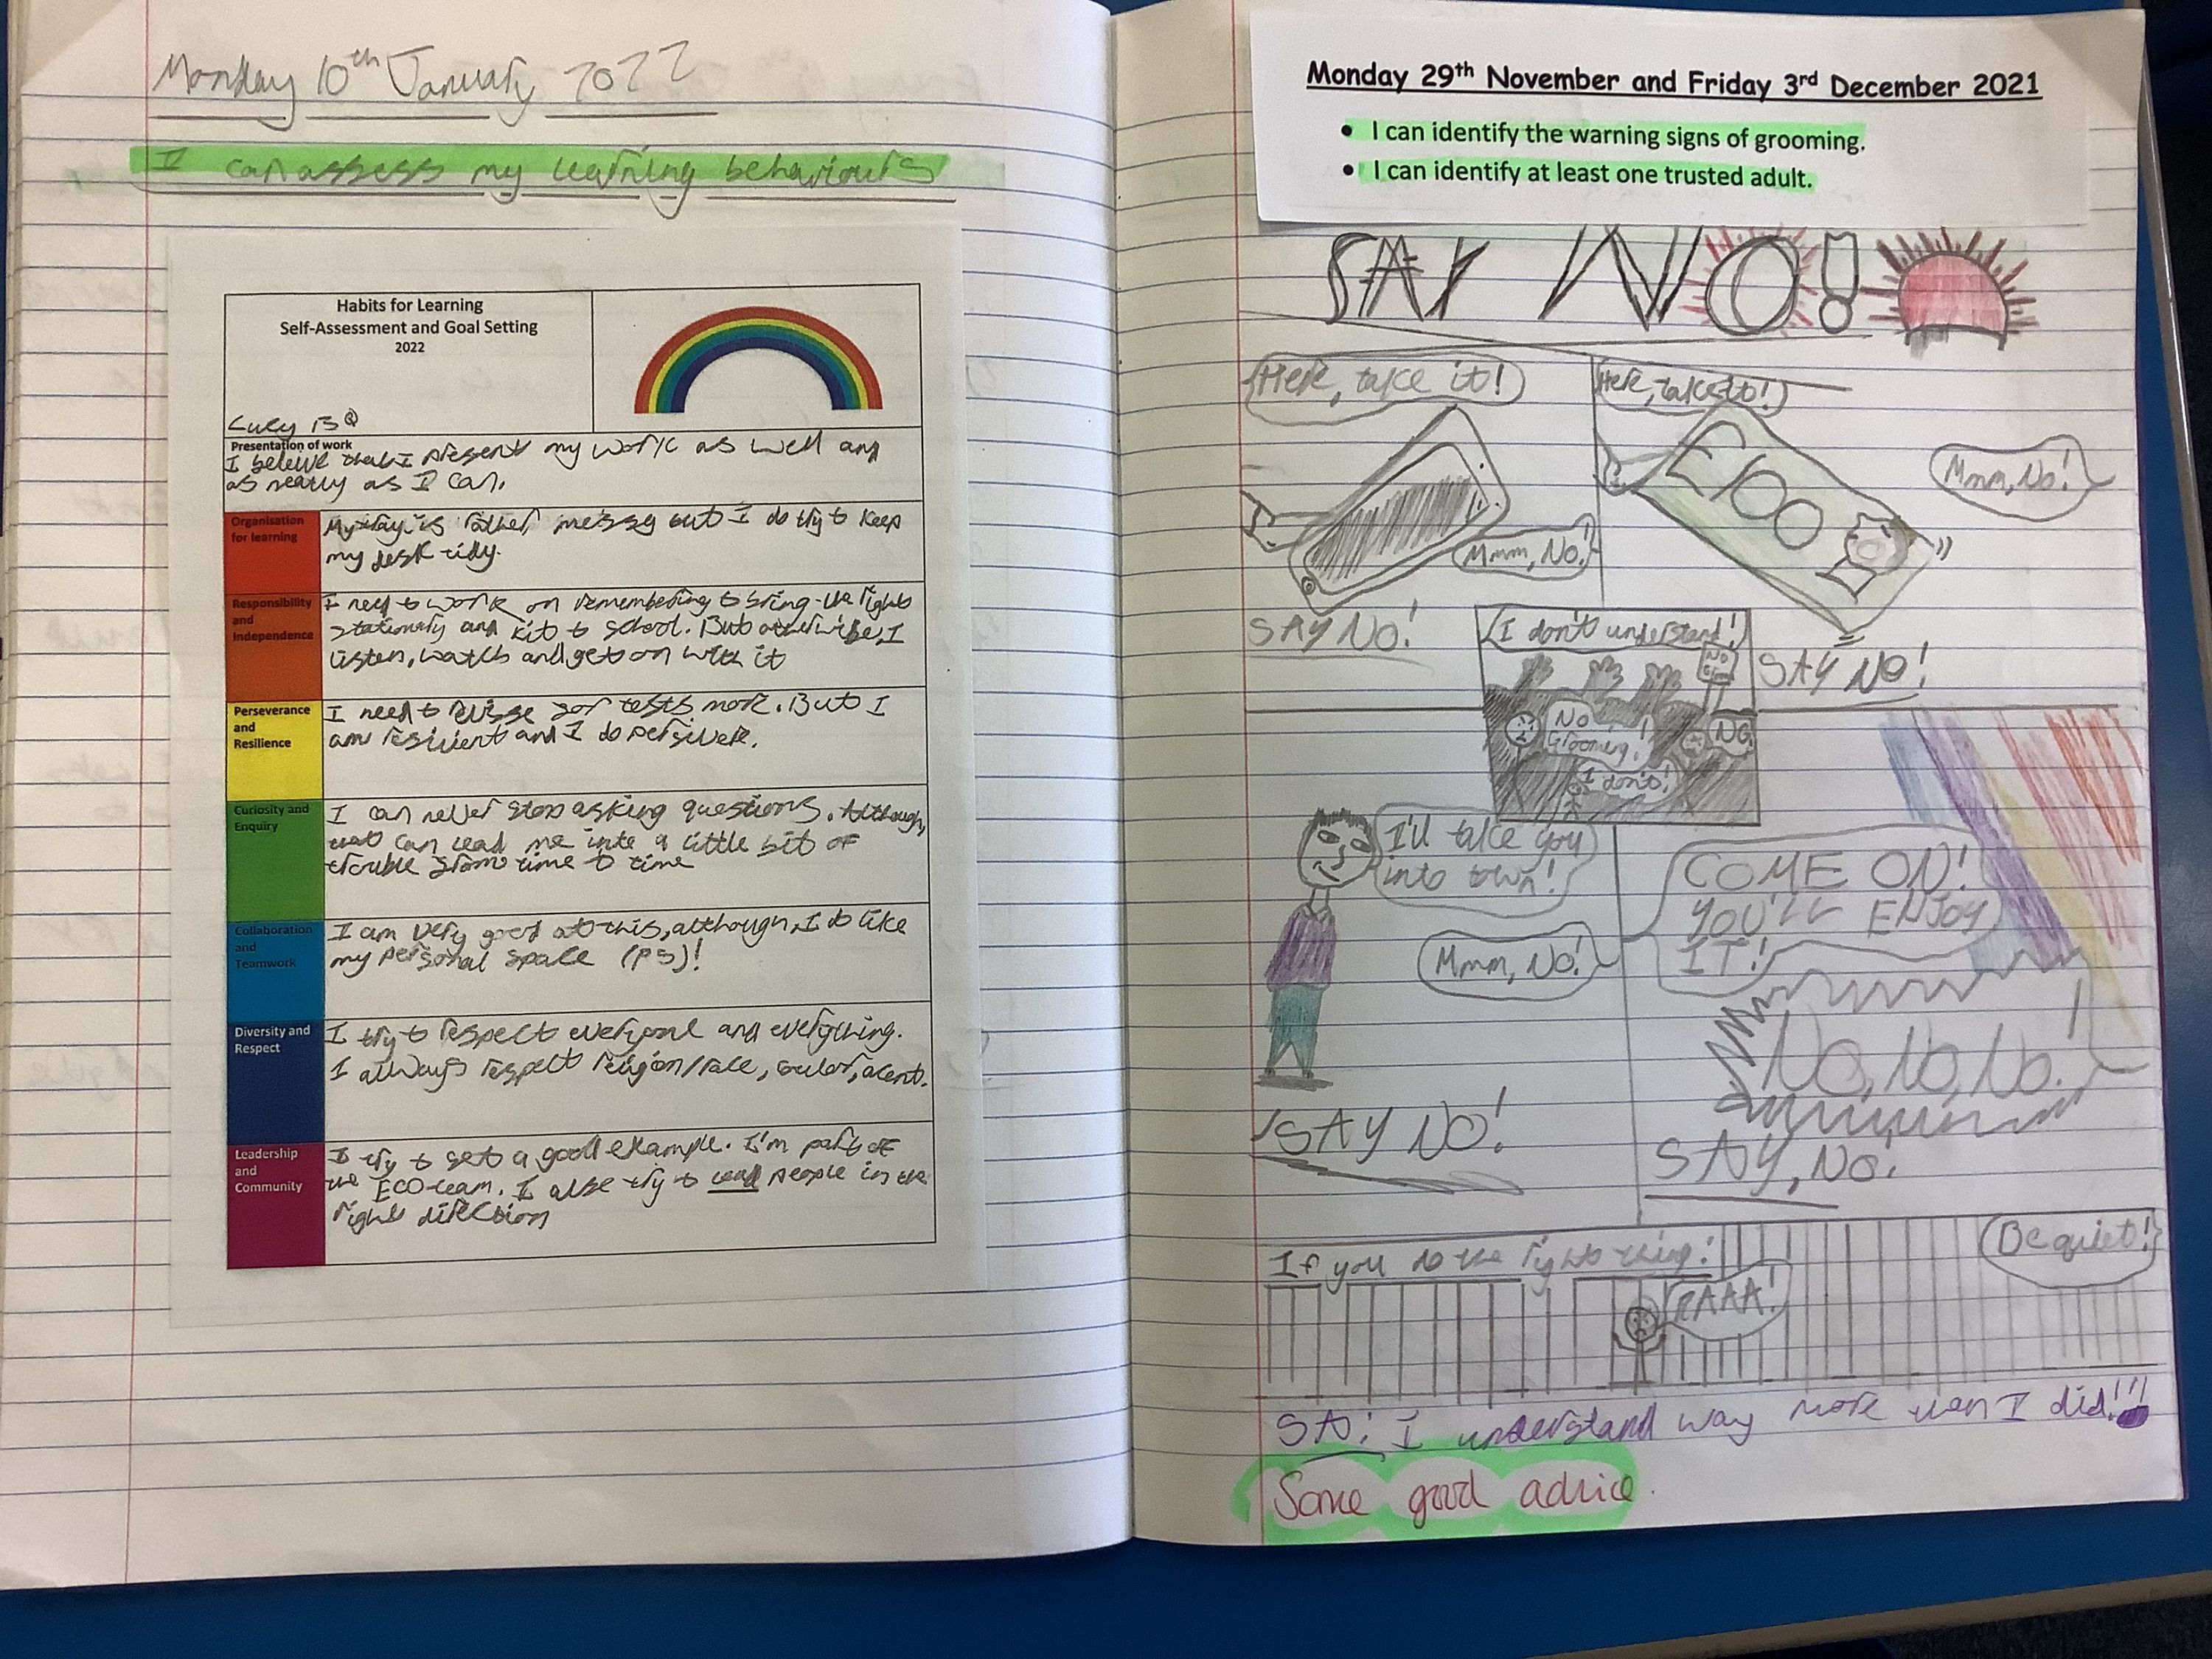 Monday 10th January 2022
I can assess my learning behaviours
Habits for Learning
Self-Assessment and Goal Setting
2022
Lucy B
Presentation of work
I beleive that I present my work as well and
as neatly as I can.
Organisation
for learning
My tray is rather messy but I do try to keep
my desk tidy.
Responsibility
and
Independence
I need to work on remembering to bring the right
stationary and kit to school. But otherwise, I
listen, watch and get on with it
Perseverance
and
Resilience
I need to revise for tests more. But I
am resilient and I do persivere.
Curiosity and
Enquiry
I can never stop asking questions. Although,
that can lead me into a little bit of
trouble from time to time
Collaboration
and
Teamwork
I am very good at this, although, I do like
my personal space (PS)!
Diversity and
Respect
I try to respect everyone and everything.
I allways respect religion/race, culer, acent.
Leadership
and
Community
I try to set a good example. I'm part of
the ECO team. I also try to lead people in the
right direction
Monday 29th November and Friday 3rd December 2021
• I can identify the warning signs of grooming.
• I can identify at least one trusted adult.
SAY NO!
Here, take it!
Mmm, No!
SAY NO!
Here, take it!
£100
Mmm, No!
SAY NO!
I don't understand!
No
Grooming!
NO
I don't!
I'll take you
into town!
Mmm, No!
SAY NO!
COME ON!
YOU'LL ENJOY
IT!
No, No, No!
SAY, NO.
If you do the right thing:
RAAA!
Be quiet!
SA: I understand way more then I did!!!
Some good advice.